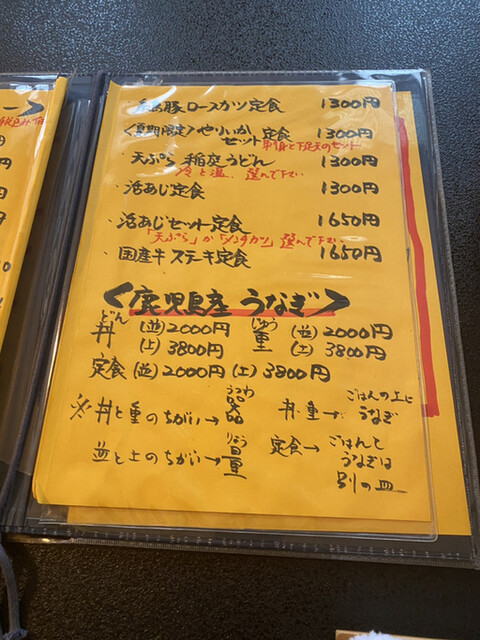 豚ロースカツ定食 1300円
<夏期限定>やりいか 定食 1300円
セット 刺身と下足天のセット
・天ぷら 稲庭うどん 1300円
冷と温、選んで下さい
・活あじ定食 1300円
・活あじセット定食 1650円
「天ぷら」か「メンチカツ」選んで下さい
・国産牛ステキ定食 1650円
<鹿児島産 うなぎ>
どん じゅう
丼 (並)2000円 重 (並)2000円
(上)3800円 (上)3800円
定食(並)2000円(上)3800円
うつわ
※丼と重のちがい→器 丼・重→ごはんの上に
うなぎ
りょう
並と上のちがい→量 定食→ごはんと
うなぎは
別の皿